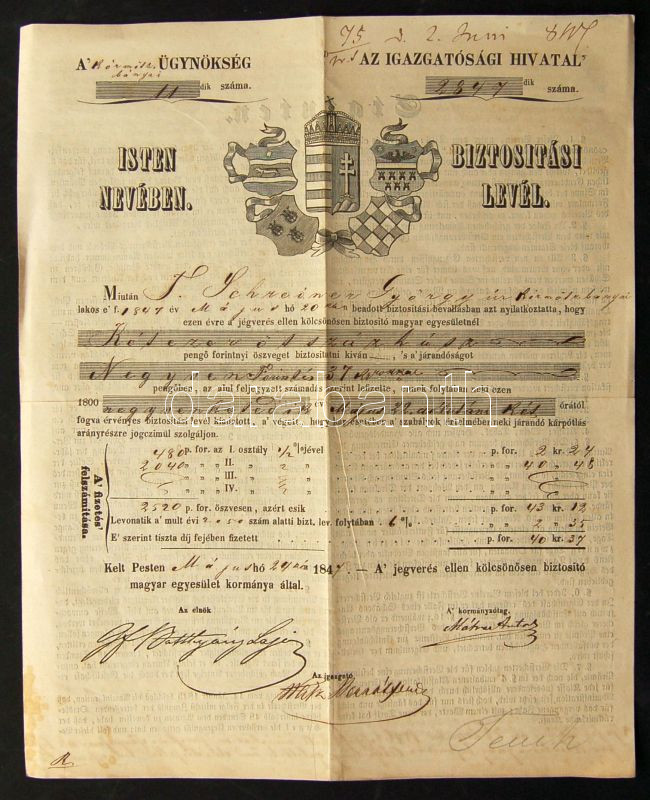 75 d. 2. Juni
A' ÜGYNÖKSÉG
11 dik száma.
AZ IGAZGATÓSÁGI HIVATAL'
2847 dik száma.
ISTEN
NEVÉBEN.
BIZTOSITÁSI
LEVÉL.
Miután T. Schreiner György úr
lakos e' f. 1847 év Május hó 20 beadott biztositási bevallásban azt nyilatkoztatta, hogy
ezen évre a' jégverés ellen kölcsönösen biztositó magyar egyesületnél
Kétezer ötszázhusz
pengő forintnyi öszveget biztositatni kiván, 's a' járandóságot
Negyven Forintés 37
pengőben, az alul feljegyzett számadás szerint lefizette, ennek folytában neki ezen
1800 negyvenhetedik Május 22. délutáni két órától
fogva érvényes biztositási levél kiadatott, a' végett, hogy kár esetében a' szabályok értelmében neki járandó kárpótlás
arányrészre jogczimül szolgáljon.
A' fizetés' felszámitása.
480 p. for. az I. osztály 1/2 %jével p. for. 2 kr. 24
2040 „ „ „ II. „ 2 „ „ „ 40 „ 48
„ „ „ III. „ „ „
„ „ „ IV. „ „ „
2520 p. for. öszvesen, azért esik p. for. 43 kr. 12
Levonatik a' mult évi 2050 szám alatti bizt. lev. folytában 6 % „ „ 2 „ 35
E' szerint tiszta díj fejében fizetett p. for. 40 kr. 37
Kelt Pesten Május hó 24 1847. — A' jegverés ellen kölcsönösen biztositó
magyar egyesület kormánya által.
Az elnök
A' kormányzótag.
Gf Batthyány Lajos
Az igazgató
darabanth